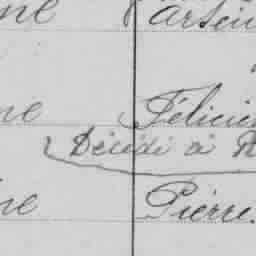 ne Arsèn
ne Félicien
Décédé à
ne Pierre.